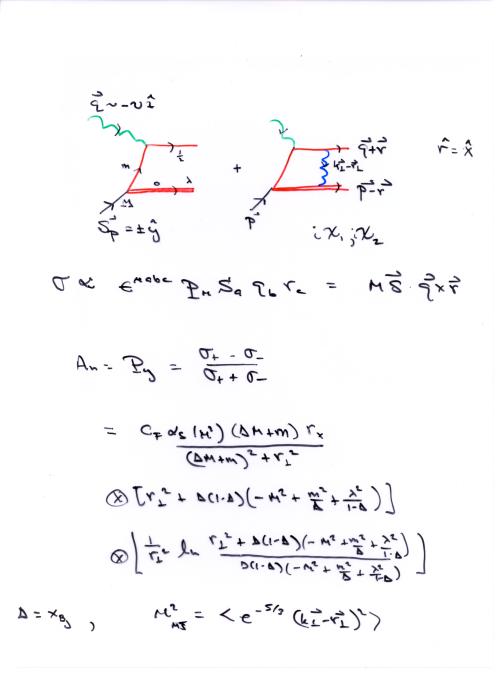 q⃗ ~ -ν ẑ
m
1/2
0
λ
M
S⃗p = ± ŷ
+
p⃗
q⃗+r⃗
k⃗⊥-r⃗⊥
p⃗-r⃗
r̂ = x̂
; χ₁ ; χ₂
σ ∝ ε^{μabc} P_μ S_a q_b r_c = M S⃗ · q⃗ × r⃗
A_n = P_y = (σ₊ - σ₋) / (σ₊ + σ₋)
= C_F α_s(μ²) (ΔM+m) r_x / ((ΔM+m)² + r⊥²)
⊗ [r⊥² + Δ(1-Δ)(-M² + m²/Δ + λ²/(1-Δ))]
⊗ [1/r⊥² ln (r⊥² + Δ(1-Δ)(-M² + m²/Δ + λ²/(1-Δ))) / (Δ(1-Δ)(-M² + m²/Δ + λ²/(1-Δ)))]
Δ = x_Bj , μ²_MS = < e^{-5/3} (k⃗⊥ - r⃗⊥)² >